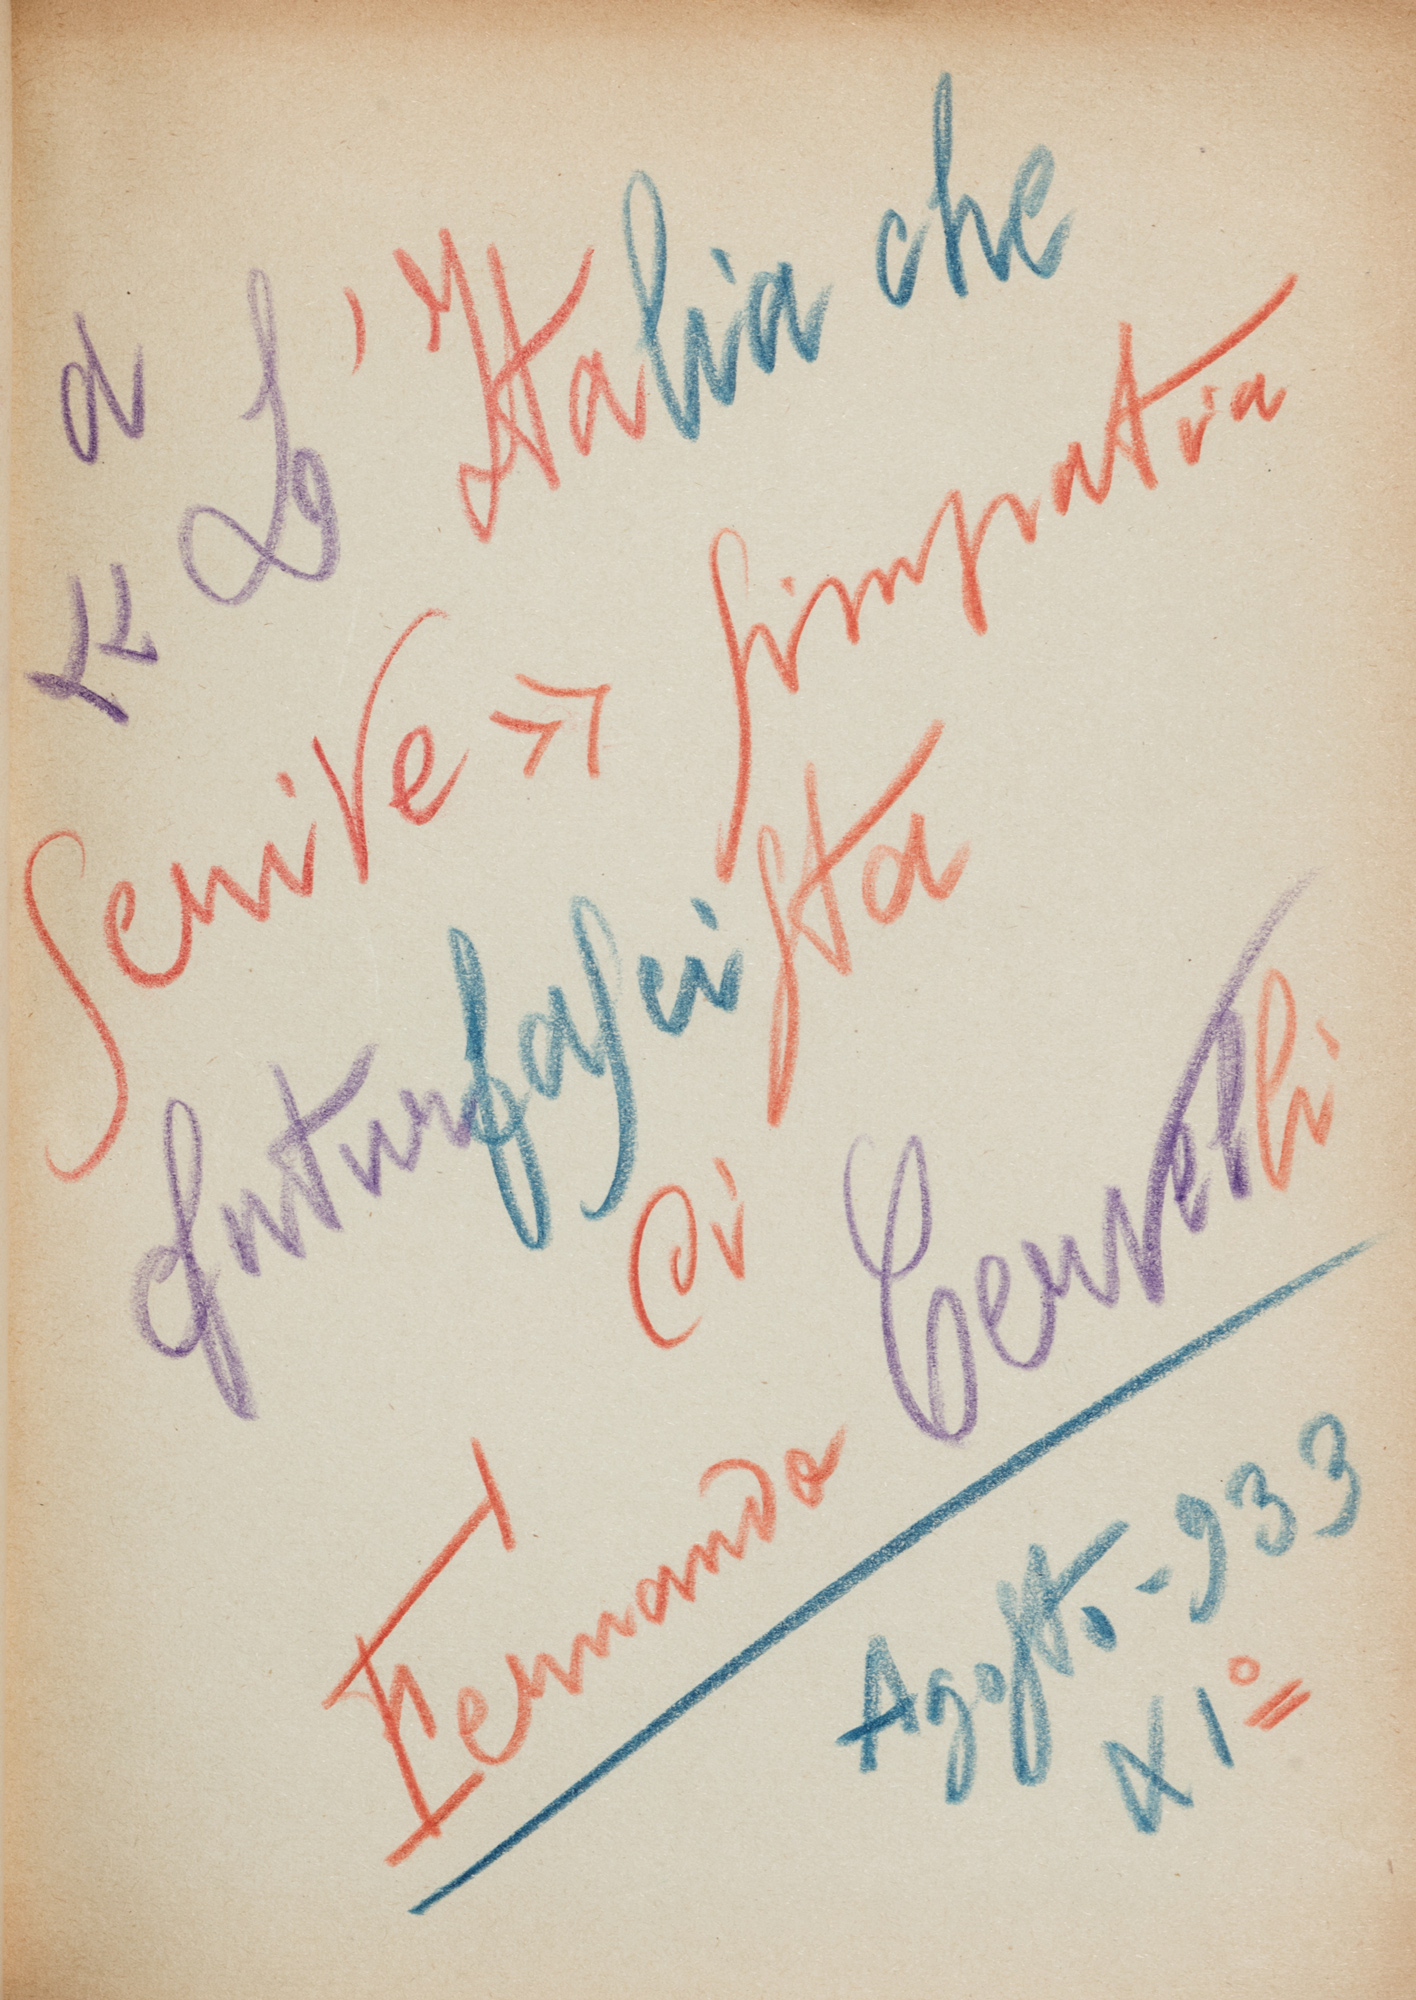 a
« L'Italia che
Scrive » simpatia
futurfascista
di
Fernando Cervelli
Agosto - 933
XI°